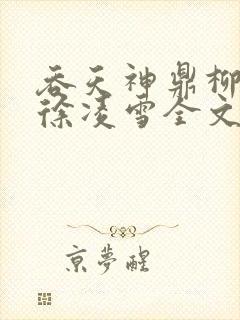 吞天神鼎柳
徐凌雪全文
京夢醒